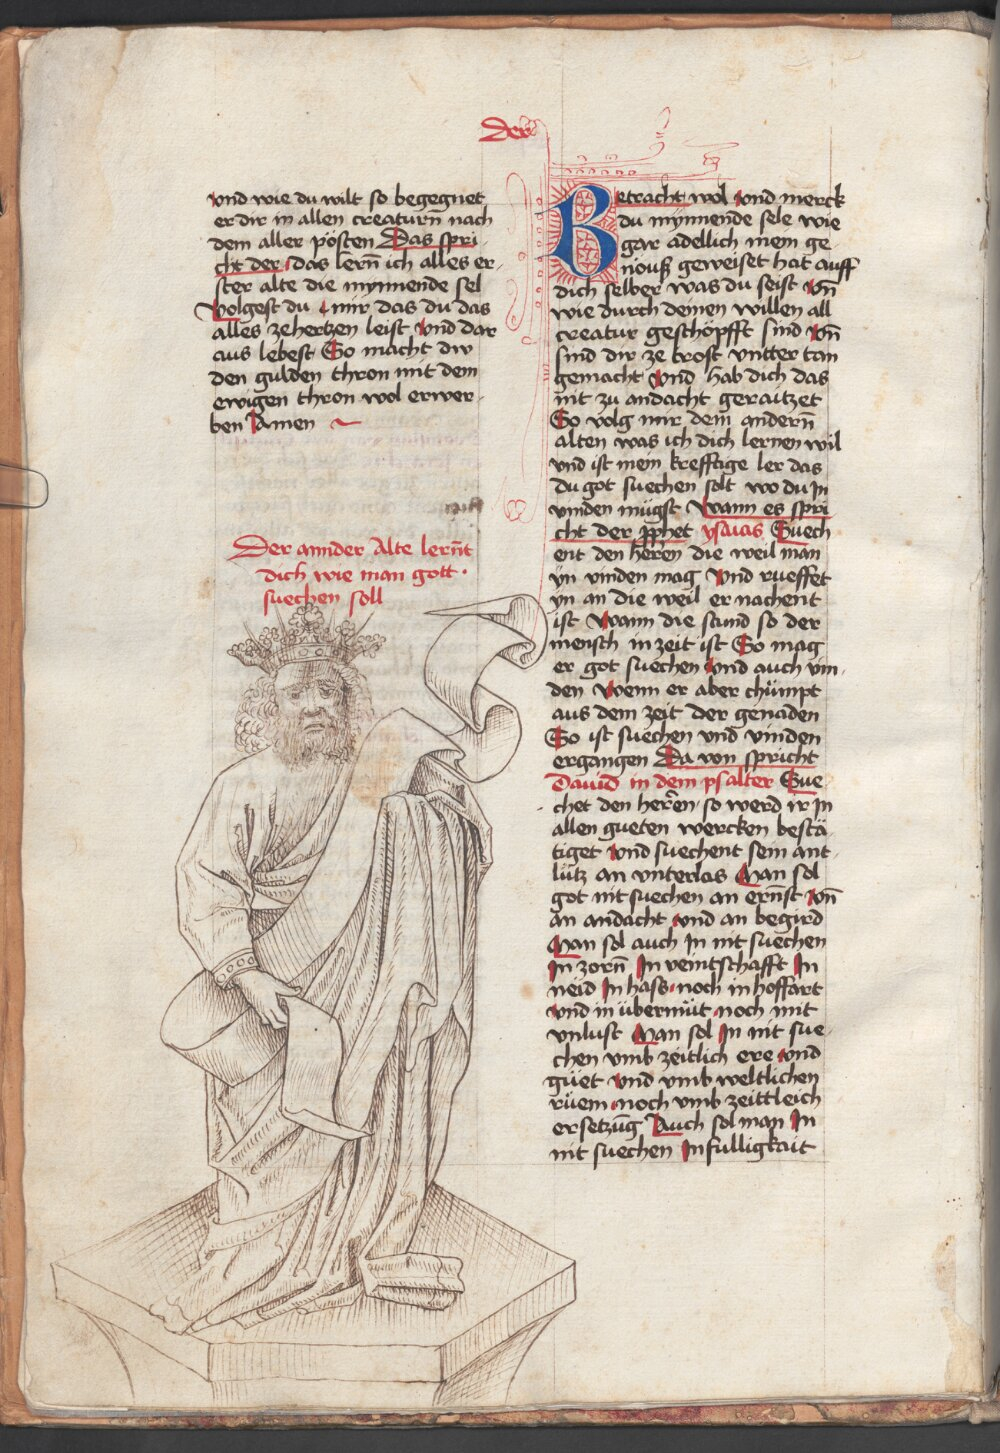 Der
vnd wie du wilt so begegnet
er dir in allen creaturn̄ nach
dem aller pösten Das spri
cht der das lern̄ ich alles er
ster alte die mynnende sel
Volgest du mir das du das
alles ze hertzen leist Vnd dar
aus lebest So macht dw
den gulden thron mit dem
ewigen thron wol erwer
ben Amen ~
Der annder Alte lern̄t
dich wie man gott
suechen soll
Betracht wol vnd merck
du mynnende sele wie
gar adellich mein ge
nouß geweiset hat auff
dich selber was du seist Vn̄
wie durch deinen willen all
creatur geschöpfft sind Vn̄
sind dir ze trost vntter tan
gemacht Vnd hab dich das
nit zu andacht geraitzet
So volg mir dem andern̄
alten was ich dich lernen wil
vnd ist mein krefftige ler das
du got suechen solt wo du In
vinden mügst Wann es spri
cht der pphet ysaias Suech
ent den heren die weil man
yn vinden mag Vnd rueffet
yn an die weil er nachent
ist Wann die stund so der
mensch in zeit ist So mag
er got suechen Vnd auch vin
den Wenn er aber chümpt
aus dem zeit der genaden
So ist suechen vnd vinden
ergangen Da von spricht
Dauid in dem psalter Sue
chet den herren so werd ir In
allen gueten wercken bestä
tiget Vnd suechent sein ant
lütz an vnterlas Man sol
got nit suechen an ern̄st Vn̄
an andacht vnd an begird
Man sol auch In nit suechen
In zorn̄ In veintschafft In
neid In hass noch in hoffart
vnd in übermüt noch mit
vnlust Man sol In nit sue
chen vmb zeitlich ere vnd
güet Vnd vmb weltlichen
rüem noch vmb zeittleich
ersetzūg Auch sol man In
nit suechen In fulligkait